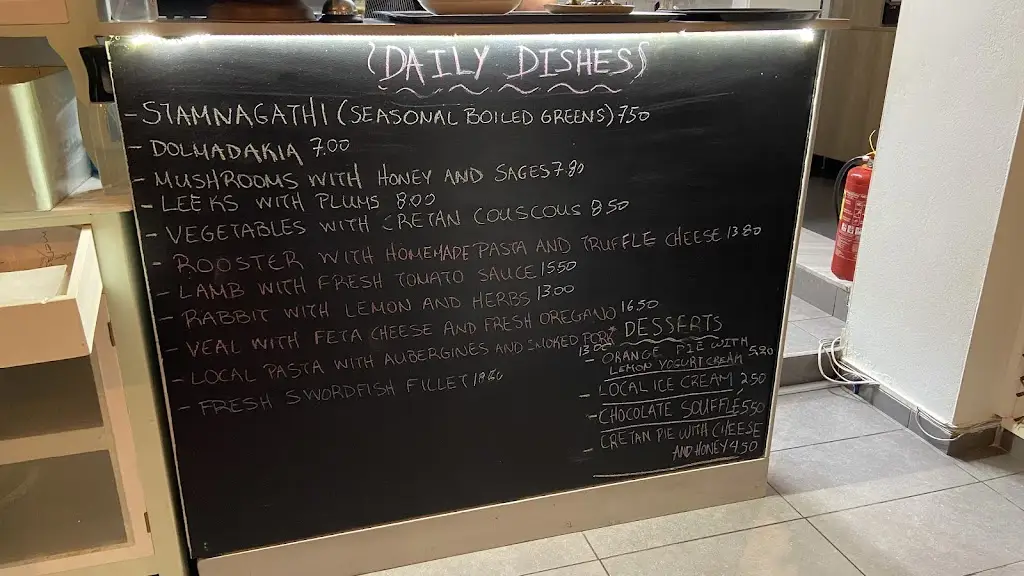 DAILY DISHES
- STAMNAGATHI (SEASONAL BOILED GREENS) 750
- DOLMADAKIA 7.00
- MUSHROOMS WITH HONEY AND SAGES 7.80
- LEEKS WITH PLUMS 8.00
- VEGETABLES WITH CRETAN COUSCOUS 850
- ROOSTER WITH HOMEMADE PASTA AND TRUFFLE CHEESE 1380
- LAMB WITH FRESH TOMATO SAUCE 1550
- RABBIT WITH LEMON AND HERBS 1300
- VEAL WITH FETA CHEESE AND FRESH OREGANO 1650
- LOCAL PASTA WITH AUBERGINES AND SMOKED PORK
- FRESH SWORDFISH FILLET
DESSERTS
- ORANGE PIE WITH
LEMON YOGURT CREAM
- LOCAL ICE CREAM 250
- CHOCOLATE SOUFFLE 550
- CRETAN PIE WITH CHEESE
AND HONEY 450